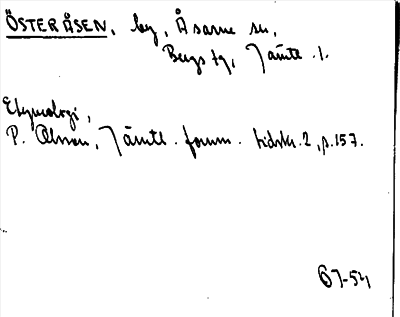 ÖSTERÅSEN, by, Åsarne sn,
Bergs tg, Jämtl. l.
Etymologi,
P. Olsson, Jämtl. fornm. tidskr. 2, p. 157.